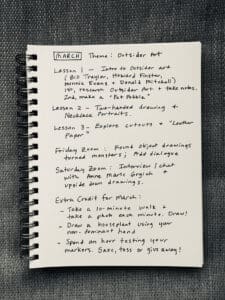 MARCH Theme: Outsider Art
Lesson 1 — Intro to Outsider art
(Bill Traylor, Howard Finster,
Minnie Evans + Donald Mitchell)
1st, research Outsider Art + take notes.
2nd, make a "Pet Pebble"
Lesson 2 — Two-handed drawing &
Necklace Portraits.
Lesson 3 — Explore cutouts + "Leather
Paper"
Friday Zoom: Found object drawings
turned monsters; Add dialogue
Saturday Zoom: Interview / chat
with Anne Marie Grgich +
upside down drawings.
Extra Credit for March:
- Take a 10-minute walk +
take a photo each minute. Draw!
- Draw a houseplant using your
non-dominant hand
- Spend an hour testing your
markers. Save, toss or give away!